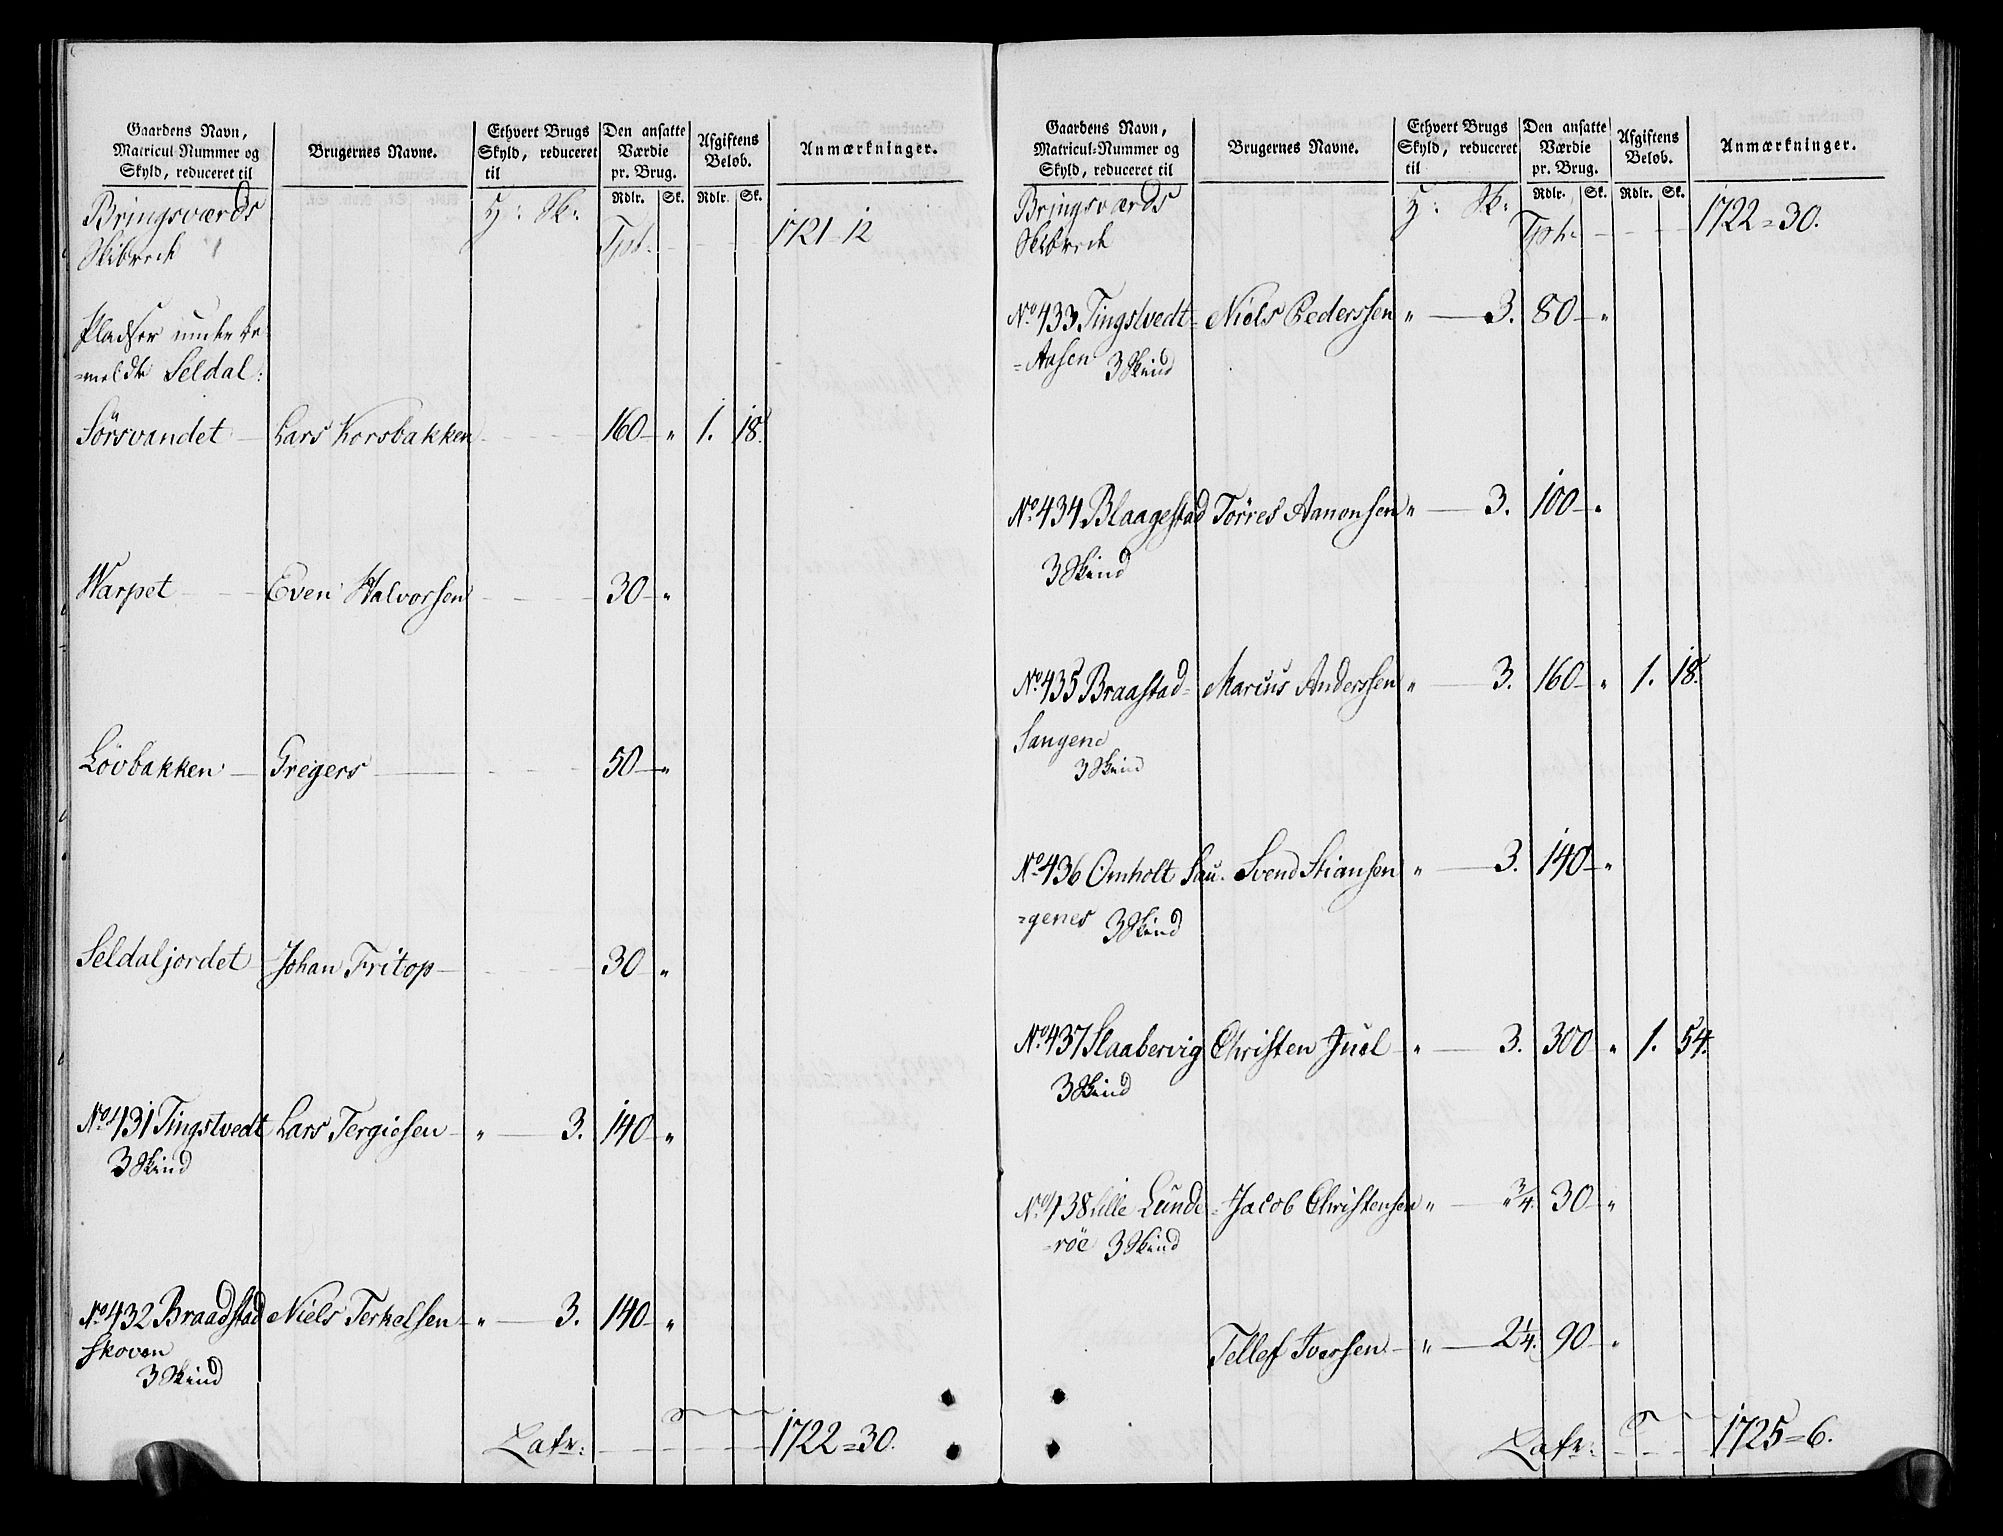 Gaardens Navn,
Matricul-Nummer og
Skyld, reduceret til
Brugernes Navne.
Ethvert Brugs
Skyld, reduceret
til
Den ansatte
Værdie
pr. Brug.
Rdlr. Sk.
Afgiftens
Beløb.
Rdlr. Sk.
Anmærkninger.
Bringsværds
Skibrede
H: Sk:
Tpt: 1721-12
Pladser under be-
=meldte Seldal:
Sörsvandet Lars Korsbakken 160 " 1. 18.
Warpet Even Halvorsen 30 "
Lövbakken Gregers 50 "
Seldaljordet Johan Fritop 30 "
No 431 Tingstvedt Lars Tergiesen " 3. 140 "
3 Skind
No 432 Braadstad Niels Terkelsen " 3. 140 "
skoven
3 Skind
Latr: 1722=30.
Gaardens Navn,
Matricul-Nummer og
Skyld, reduceret til
Brugernes Navne.
Ethvert Brugs
Skyld, reduceret
til
Den ansatte
Værdie
pr. Brug.
Rdlr. Sk.
Afgiftens
Beløb.
Rdlr. Sk.
Anmærkninger.
Bringsværds
Skibrede
H: Sk:
Tpt: 1722=30.
No 433 Tingstvedt= Niels Pederssen " 3. 80 "
=Aasen 3 Skind
No 434 Blaagestad Törres Aanonsen " 3. 100 "
3 Skind
No 435 Braastad= Marcus Anderssen " 3. 160 " 1. 18.
Saugene
3 Skind
No 436 Omholt Sau- Svend Stiansen " 3. 140 "
=genes 3 Skind
No 437 Slaabervig Christen Juel " 3. 300 " 1. 54.
3 Skind
No 438 Lille Lunde= Jacob Christensen " " 3/4. 30 "
=röe 3 Skind
Tellef Iversen " 2 1/4. 90 "
Latr: 1725=6.